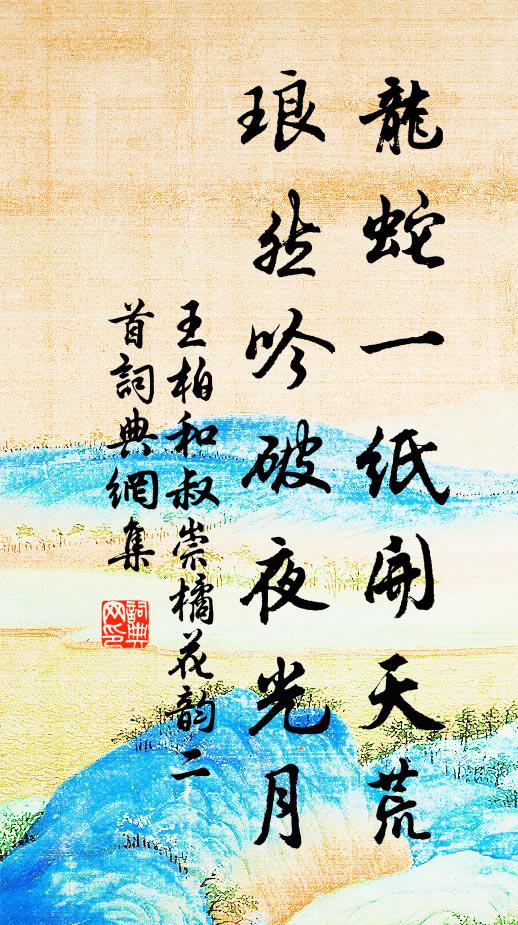 龍蛇一紙開天荒
琅然吟破夜光月
王柏和叔崇橘花韵二
首詞典網集
詞典
网印